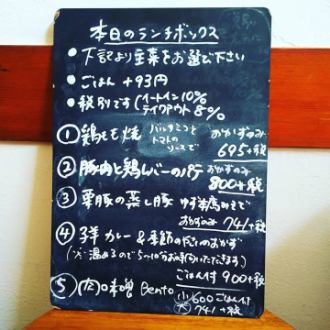 本日のランチボックス
● 下記より主菜をお選び下さい
● ごはん +93円
● 税別です(イートイン10%
テイクアウト8%
① 鶏もも焼 バルサミコと
トマトの
ソースで
おかずのみ
695+税
② 豚肉と鶏レバーのパテ おかずのみ
800+税
③ 栗豚の蒸し豚
おかずのみ 741+税
④ カレー&季節の のおかず
温めるので5~10分お時間いただきます)
ごはん付 900+税
⑤ 肉味噌 Bento 小600ごはん付
大741+税